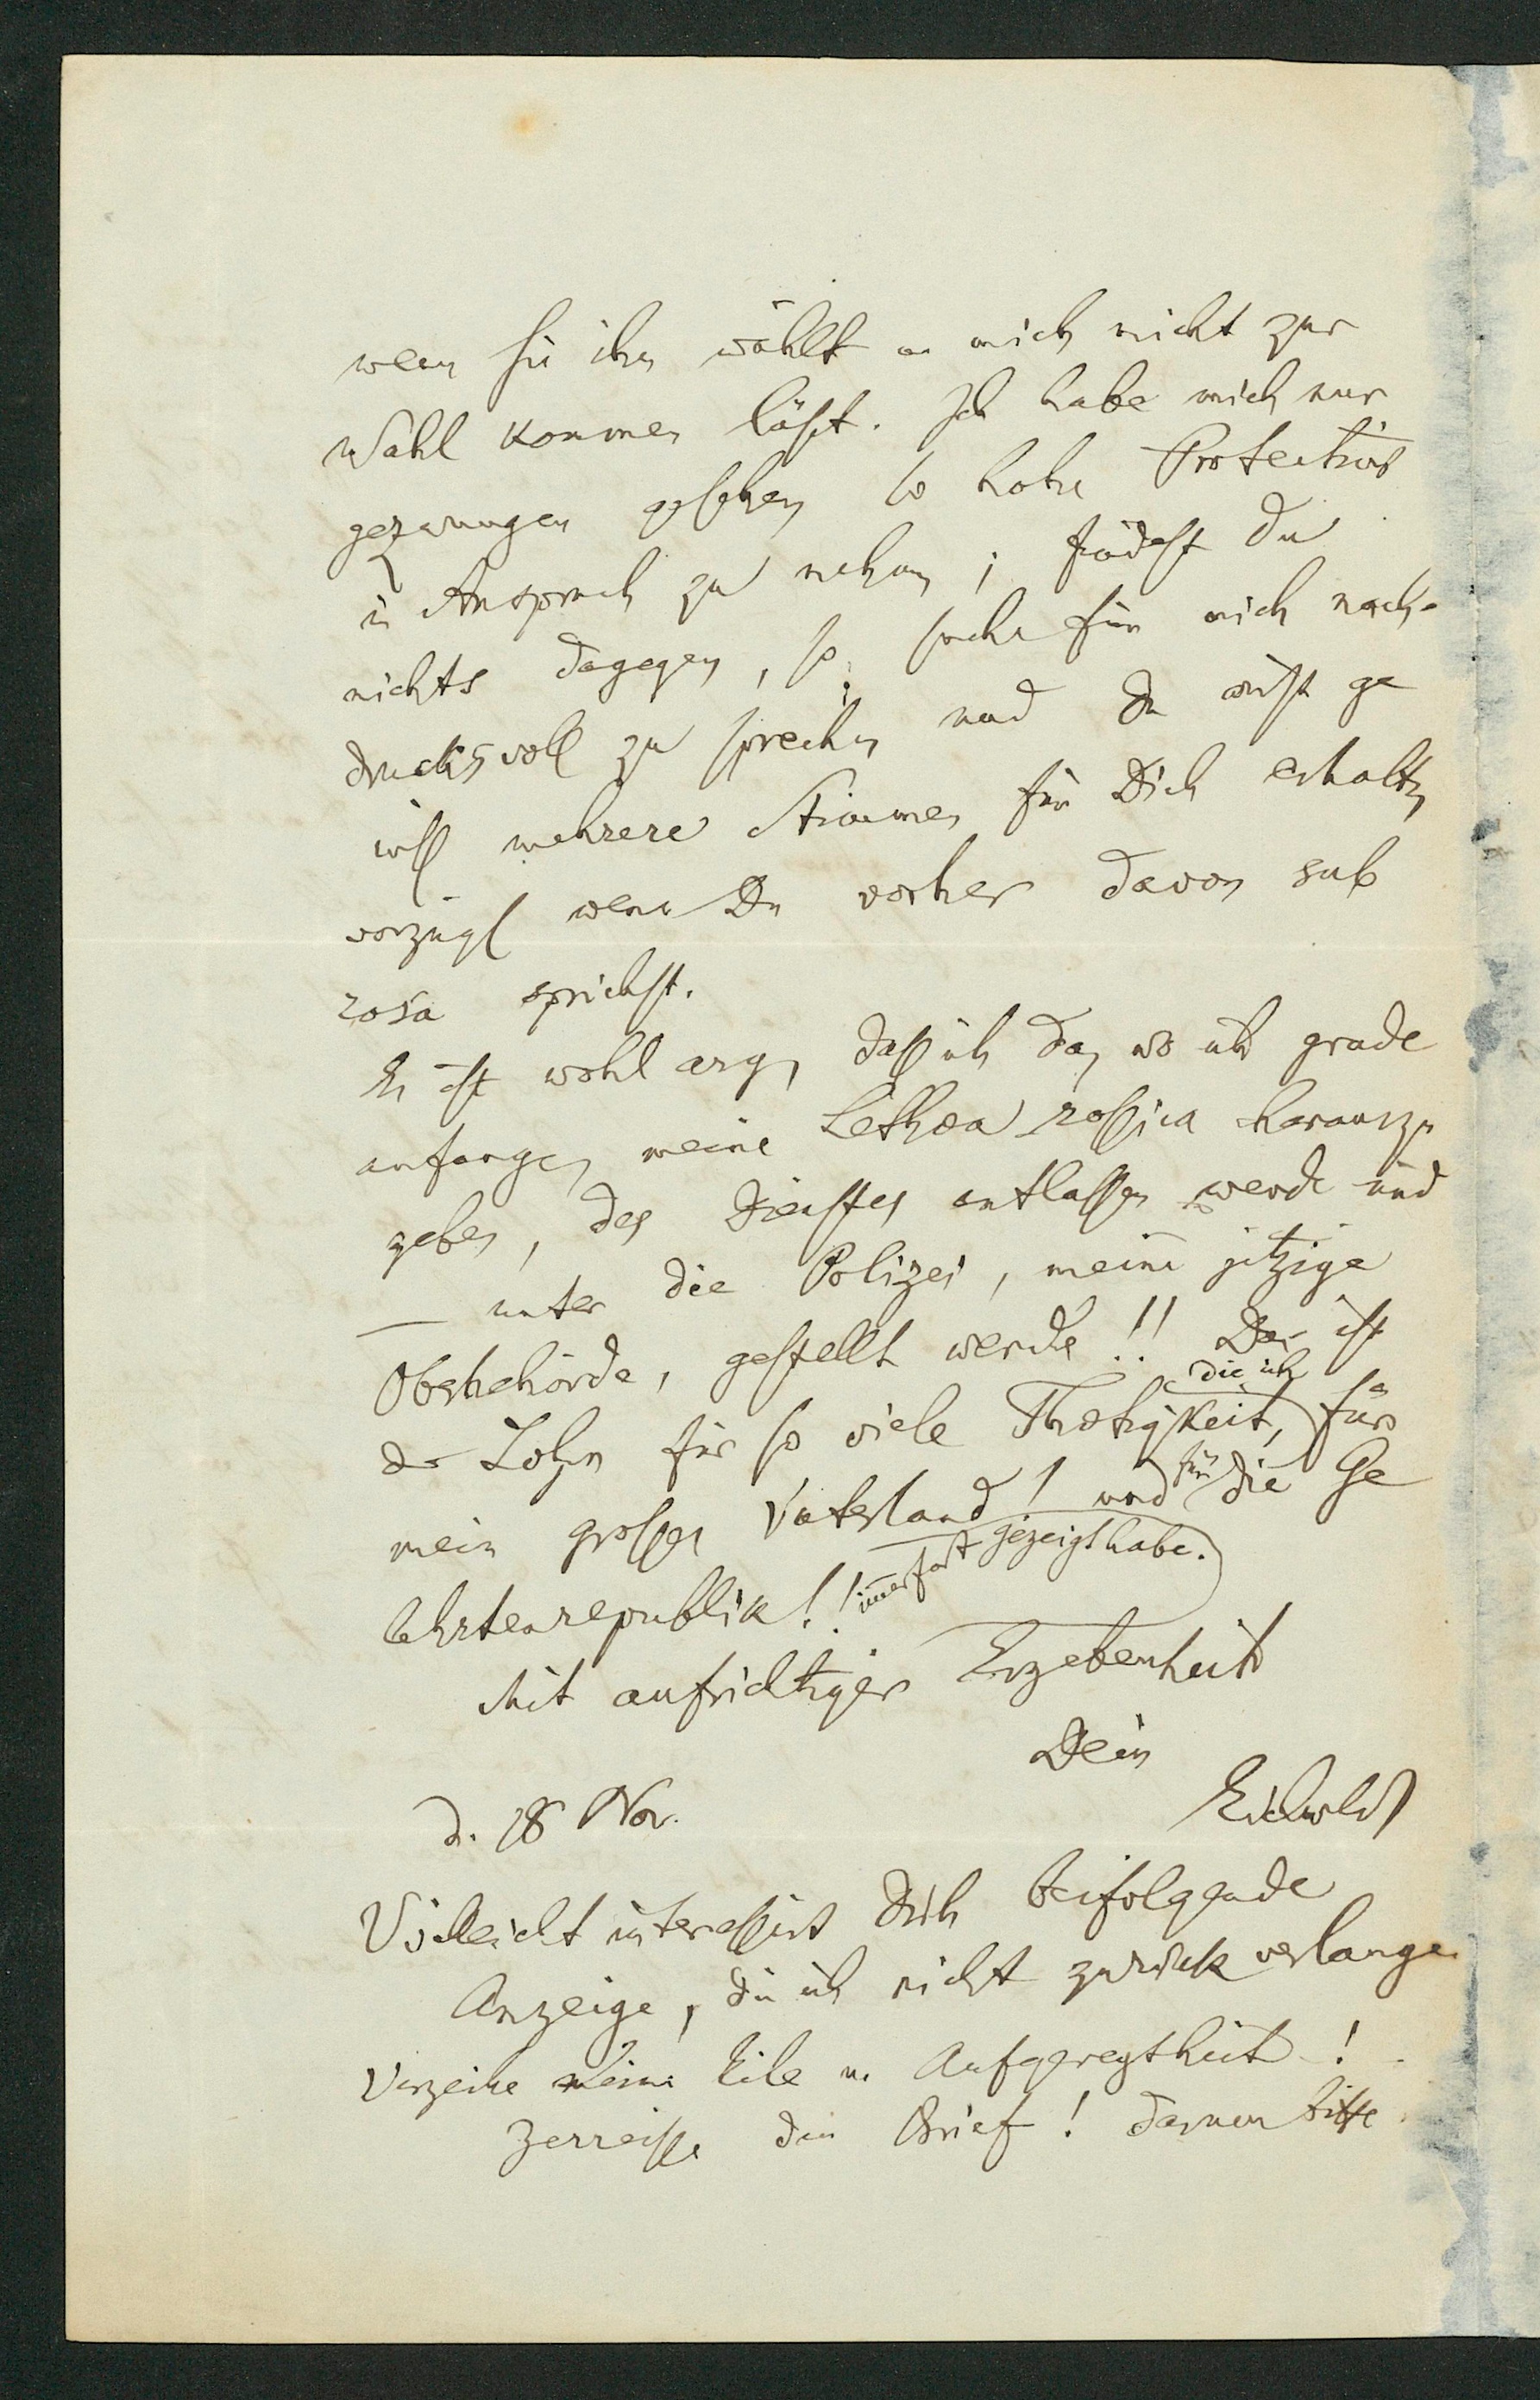 wenn sie ihn wählt u mich nicht zur
Wahl kommen läßt. Ich habe mich nur
gezwungen gesehen so hohe Protection
in Anspruch zu nehmen; findest Du
nichts dagegen, so suche für mich nach-
drucksvoll zu sprechen und Du wirst ge
wiß mehrere Stimmen für Dich erhalten
vorzügl wenn Du vorher davon sub
rosa sprichst.
Es ist wohl arg, daß ich da, wo ich grade
anfange, meine Lethaea rossica herauszu
geben, des Dienstes entlassen werde und
— unter die Polizei, meine jetzige
Oberbehörde, gestellt werde!! Das ist
der Lohn für so viele Thätigkeit, die ich für
mein grosses Vaterland! und für die Ge
lehrtenrepublik!! immerfort gezeigt habe.
Mit aufrichtiger Ergebenheit
Dein
Eichwald
d. 18 Nov.
Vielleicht interessirt Dich beifolgende
Anzeige, die ich nicht zurück verlange
Verzeihe meine Eile u. Aufgeregtheit!
Zerreisse den Brief! darum bitte